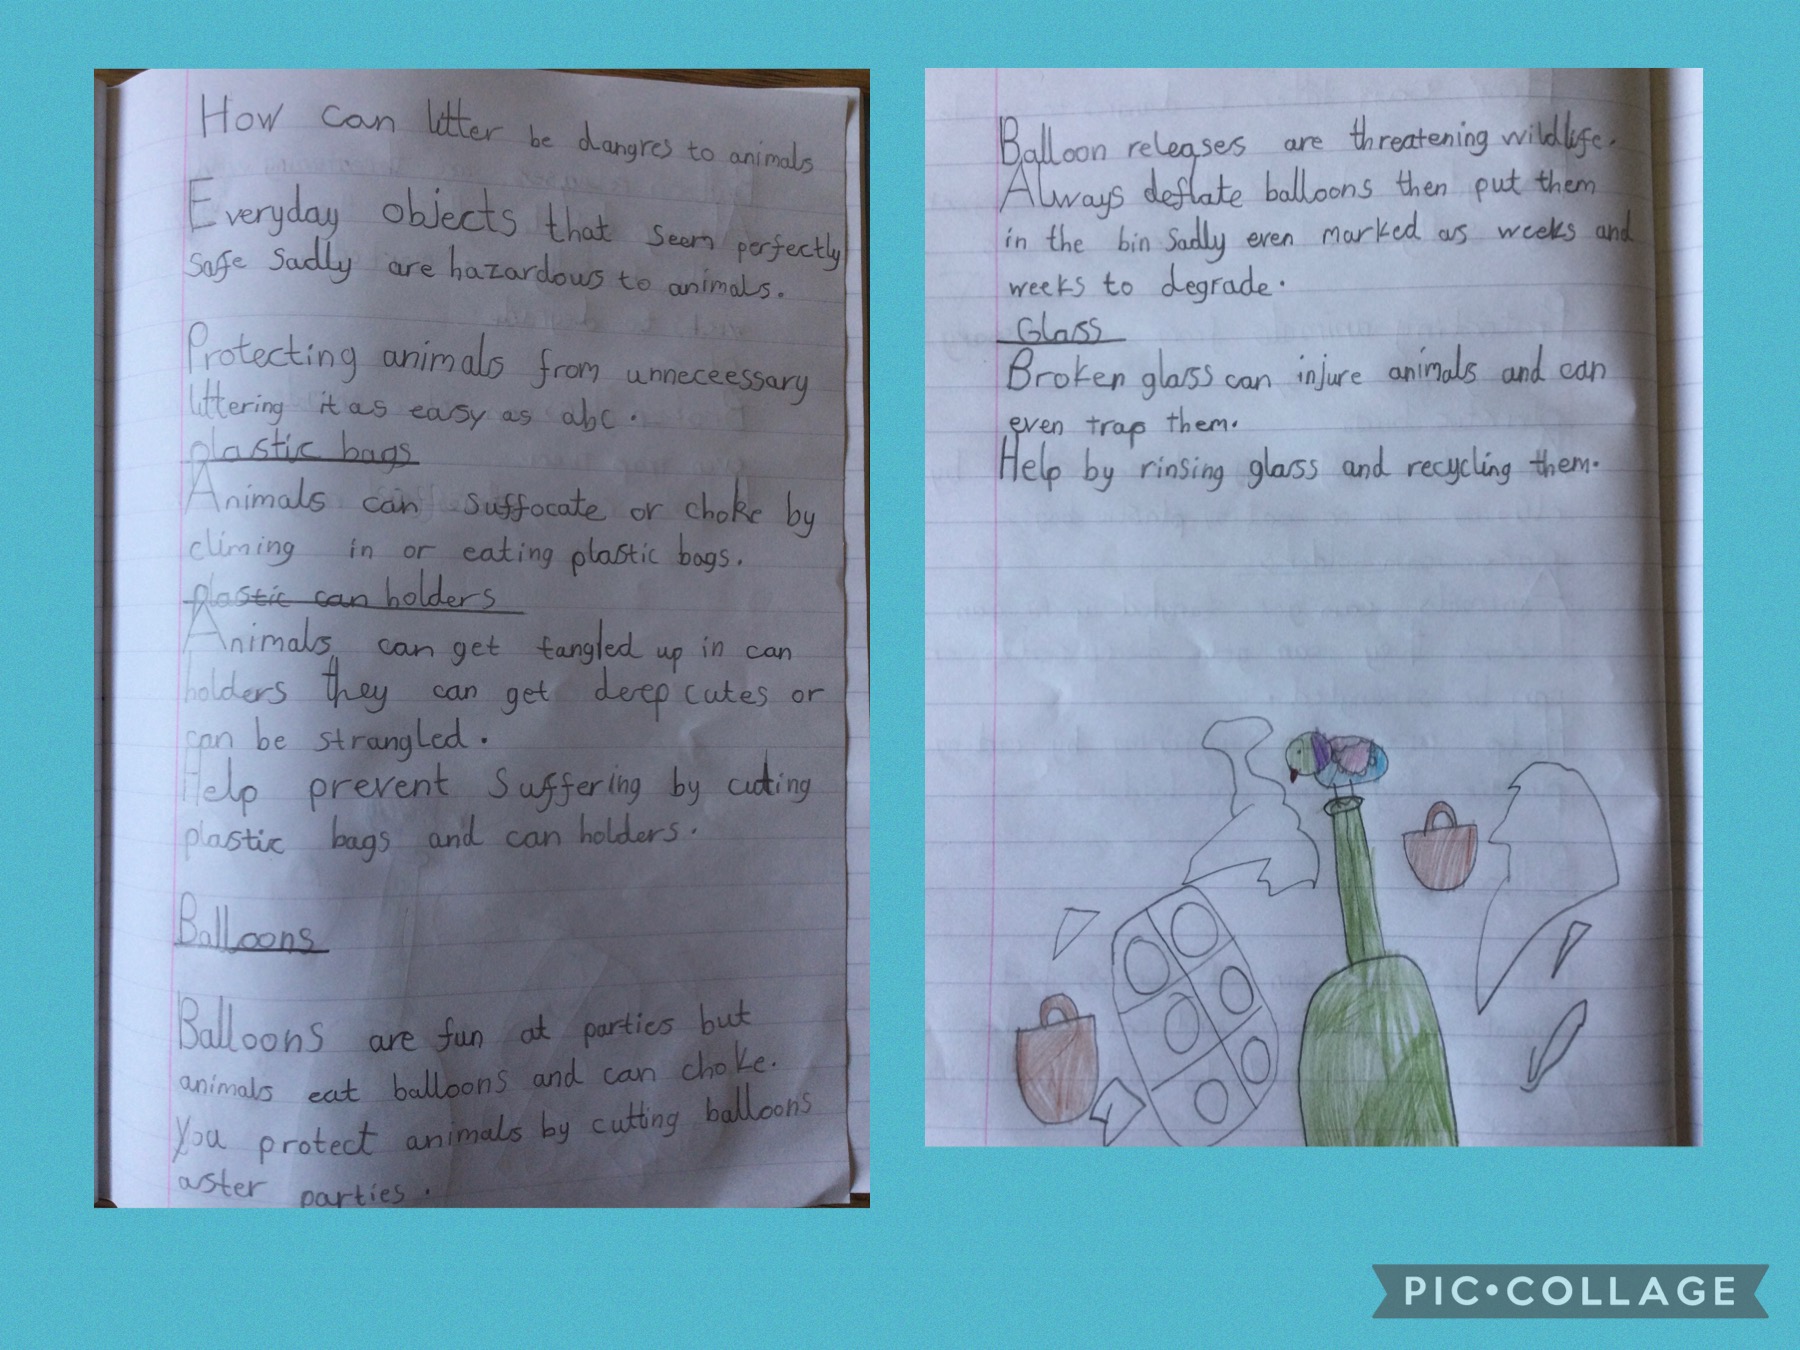 How can litter be dangres to animals
Everyday objects that seem perfectly
safe sadly are hazardous to animals.
Protecting animals from unneceessary
littering it as easy as abc.
plastic bags
Animals can suffocate or choke by
climing in or eating plastic bags.
plastic can holders
Animals can get tangled up in can
holders they can get deep cutes or
can be strangled.
Help prevent suffering by cuting
plastic bags and can holders.
Balloons
Balloons are fun at parties but
animals eat balloons and can choke.
You protect animals by cutting balloons
aster parties.
Balloon releases are threatening wildlife.
Always deflate balloons then put them
in the bin sadly even marked as weeks and
weeks to degrade.
Glass
Broken glass can injure animals and can
even trap them.
Help by rinsing glass and recycling them.
PIC•COLLAGE